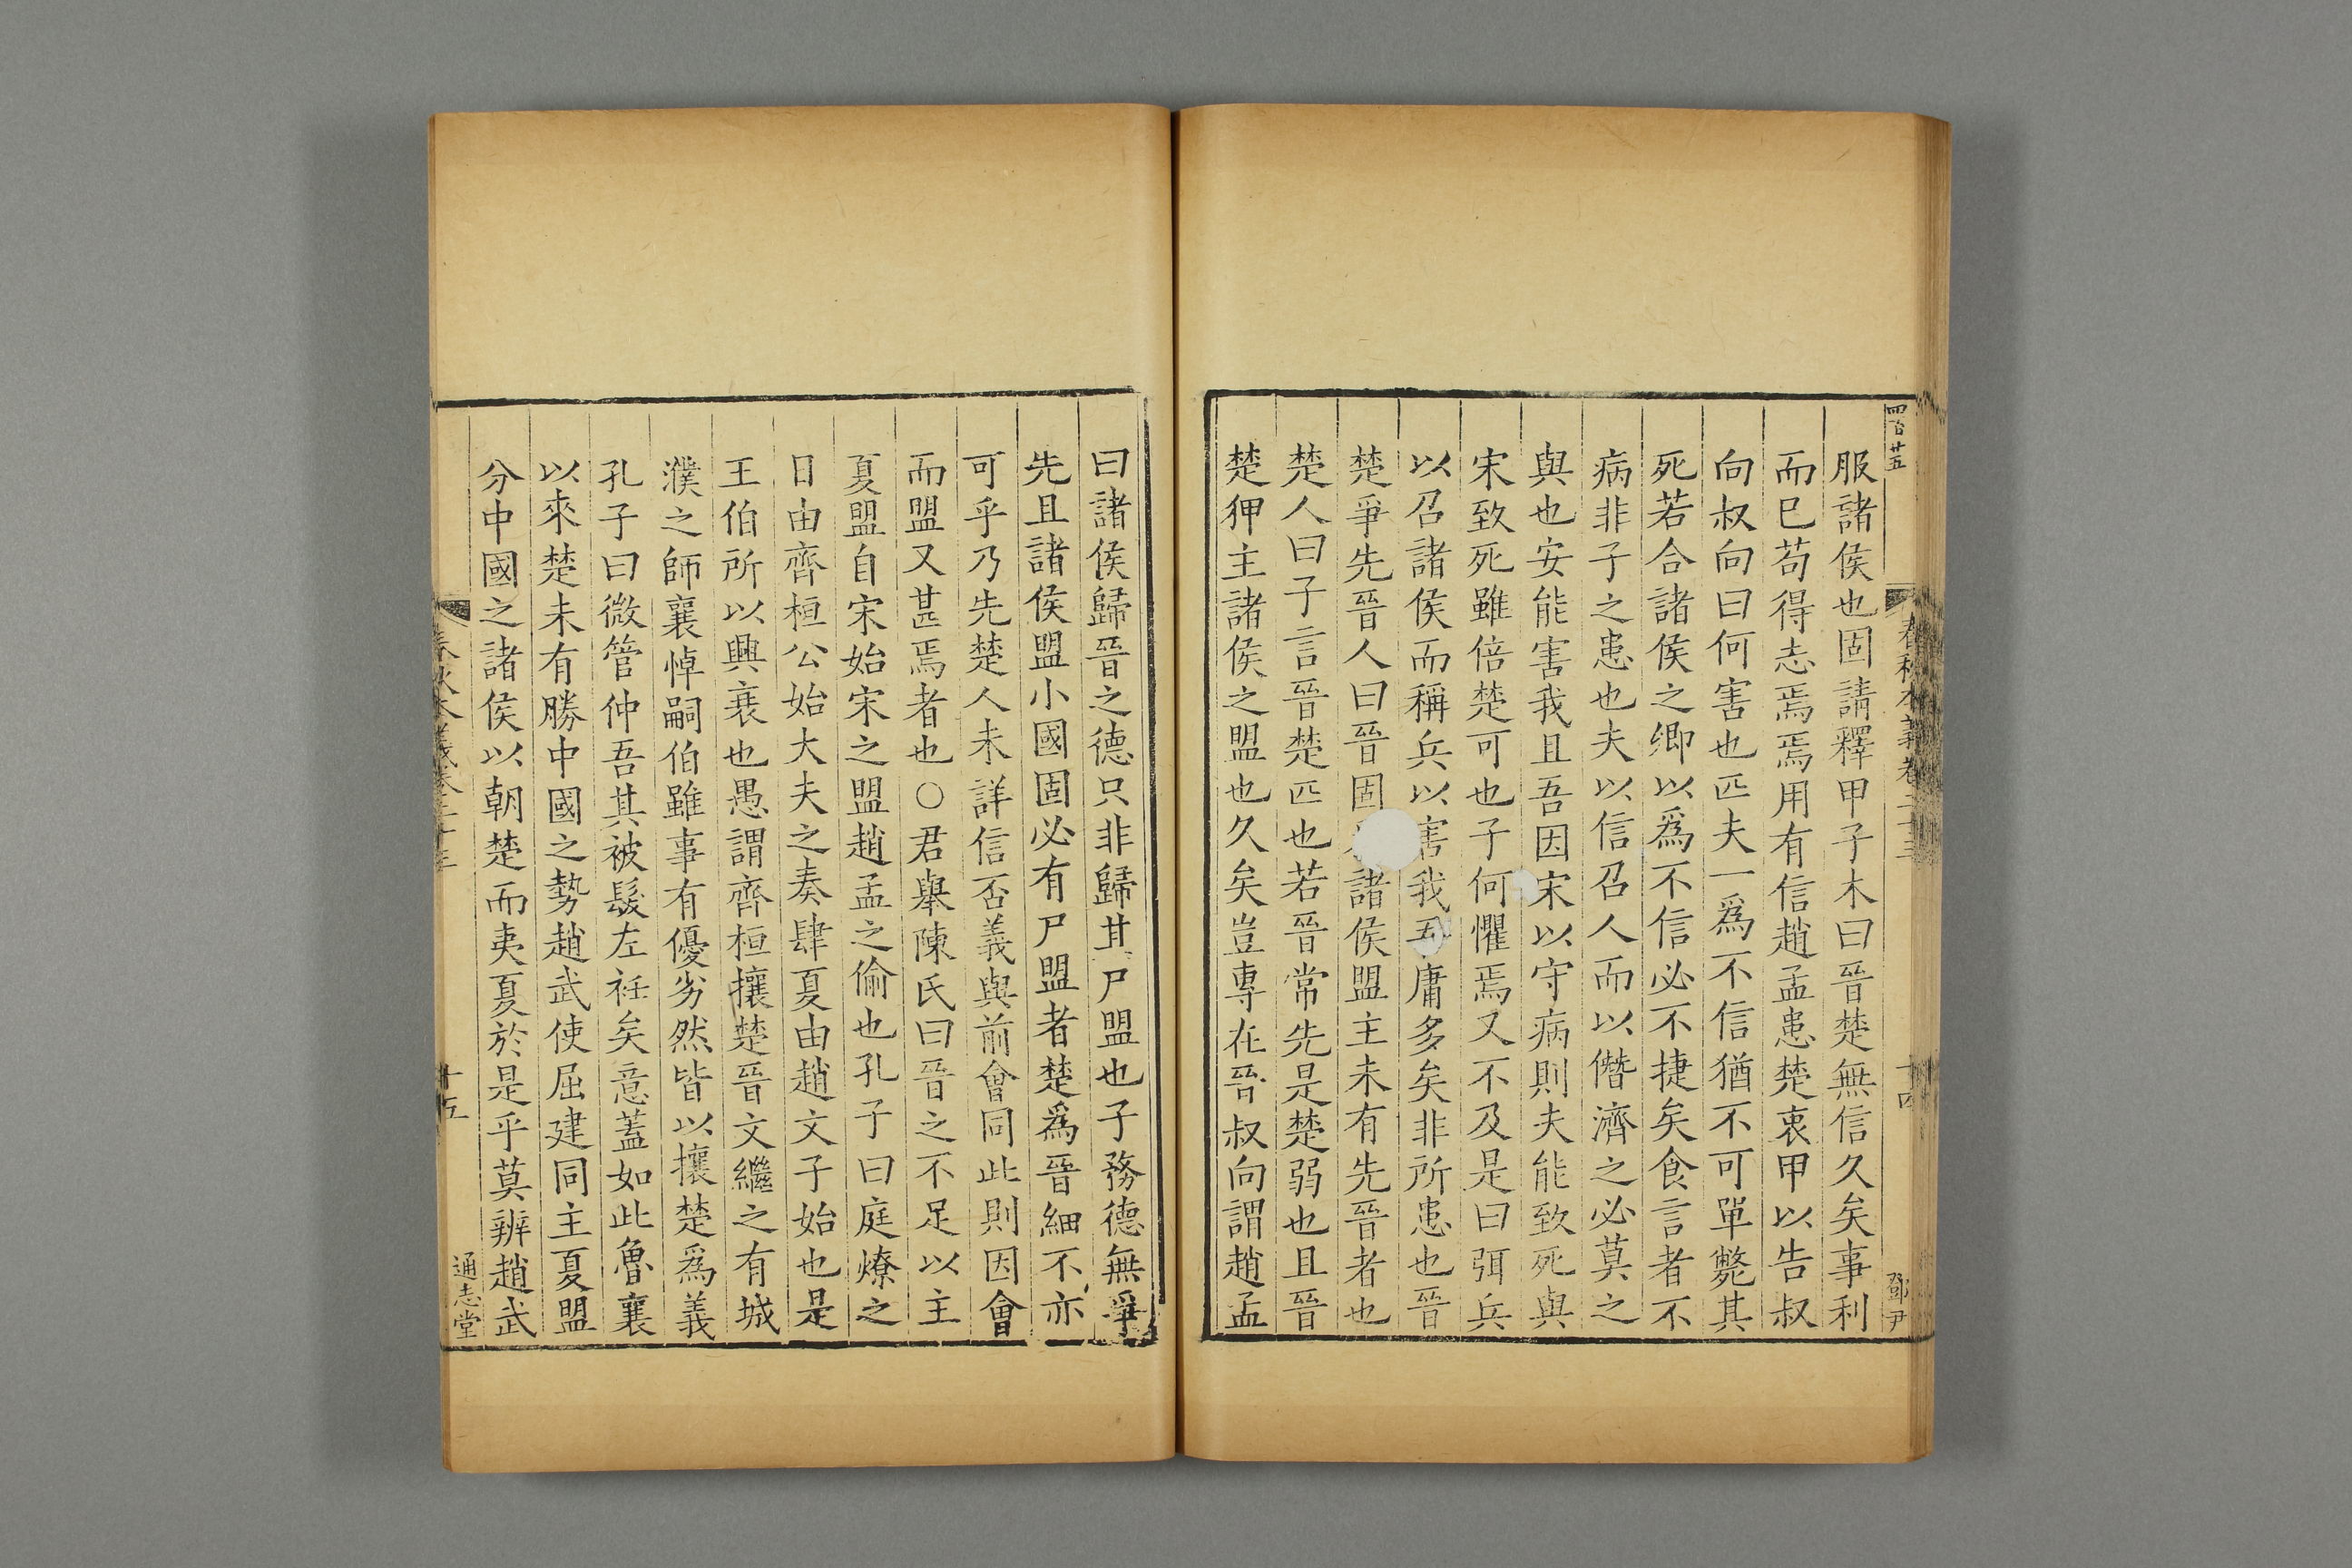 四百廿五
春秋本義卷二十三
十四
鄧尹
服諸侯也固請釋甲子木曰晉楚無信久矣事利
而巳苟得志焉焉用有信趙孟患楚衷甲以告叔
向叔向曰何害也匹夫一爲不信猶不可單斃其
死若合諸侯之卿以爲不信必不捷矣食言者不
病非子之患也夫以信召人而以僭濟之必莫之
與也安能害我且吾因宋以守病則夫能致死與
宋致死雖倍楚可也子何懼焉又不及是曰弭兵
以召諸侯而稱兵以害我吾庸多矣非所患也晉
楚爭先晉人曰晉固諸侯盟主未有先晉者也
楚人曰子言晉楚匹也若晉常先是楚弱也且晉
楚狎主諸侯之盟也久矣豈專在晉叔向謂趙孟
曰諸侯歸晉之德只非歸其尸盟也子務德無爭
先且諸侯盟小國固必有尸盟者楚爲晉細不亦
可乎乃先楚人未詳信否義與前會同此則因會
而盟又甚焉者也○君舉陳氏曰晉之不足以主
夏盟自宋始宋之盟趙孟之偷也孔子曰庭燎之
日由齊桓公始大夫之奏肆夏由趙文子始也是
王伯所以興衰也愚謂齊桓攘楚晉文繼之有城
濮之師襄悼嗣伯雖事有優劣然皆以攘楚爲義
孔子曰微管仲吾其被髮左衽矣意蓋如此魯襄
以來楚未有勝中國之勢趙武使屈建同主夏盟
分中國之諸侯以朝楚而夷夏於是乎莫辨趙武
春秋本義卷二十三
十五
通志堂